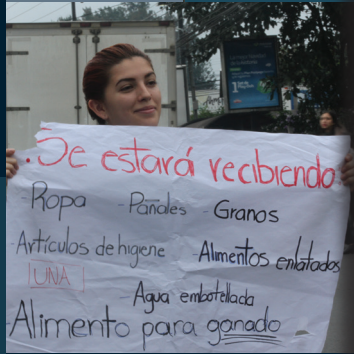 . Se estará recibiendo
- Ropa - Pañales - Granos
- Artículos de higiene - Alimentos enlatados
UNA - Agua embotellada
- Alimento para ganado